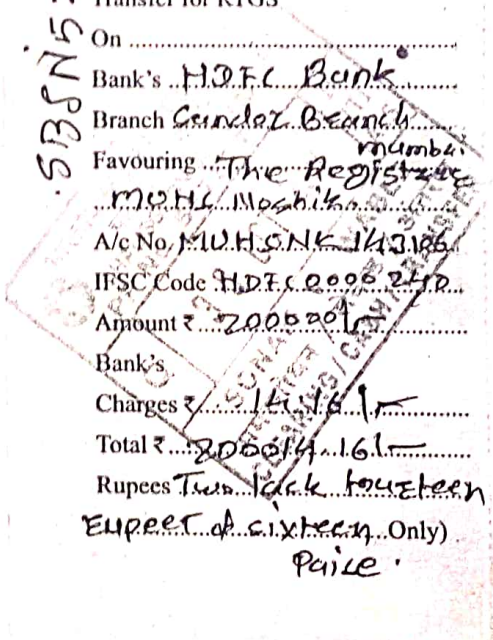 Transfer for RTGS
On
Bank's HDFC Bank
Branch Sandoz Branch
Mumbai
Favouring The Registrar
MUHS Nashik
A/c No. MUHSNK 143106
IFSC Code HDFC0000240
Amount ₹ 200000/-
Bank's
Charges ₹ 14.16/-
Total ₹ 200014.16/-
Rupees Two lack fourteen
Rupees & sixteen Only)
Paise.